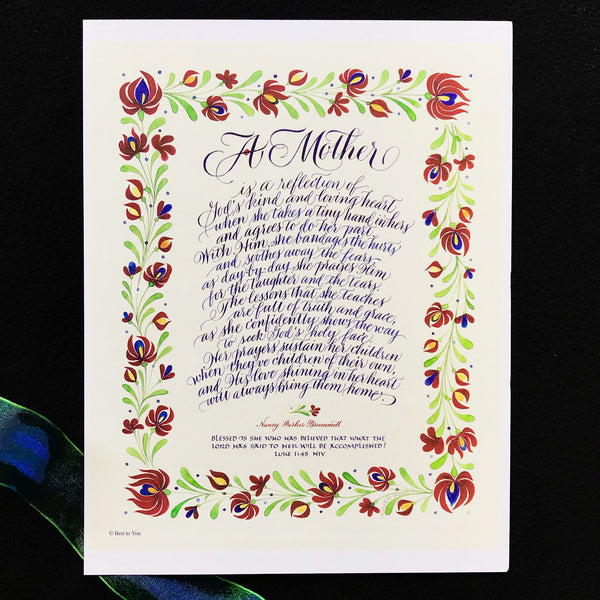 A Mother
is a reflection of
God's kind and loving heart
when she takes a tiny hand in hers
and agrees to do her part.
With Him, she bandages the hurts
and soothes away the fears
as day-by-day she praises Him
for the laughter and the tears.
The lessons that she teaches
are full of truth and grace,
as she confidently shows the way
to seek God's holy face.
Her prayers sustain her children
when they've children of their own,
and His love shining in her heart
will always bring them home.
Nancy Parker Brummett
BLESSED IS SHE WHO HAS BELIEVED THAT WHAT THE
LORD HAS SAID TO HER WILL BE ACCOMPLISHED!
LUKE 1:45 NIV
© Best to You